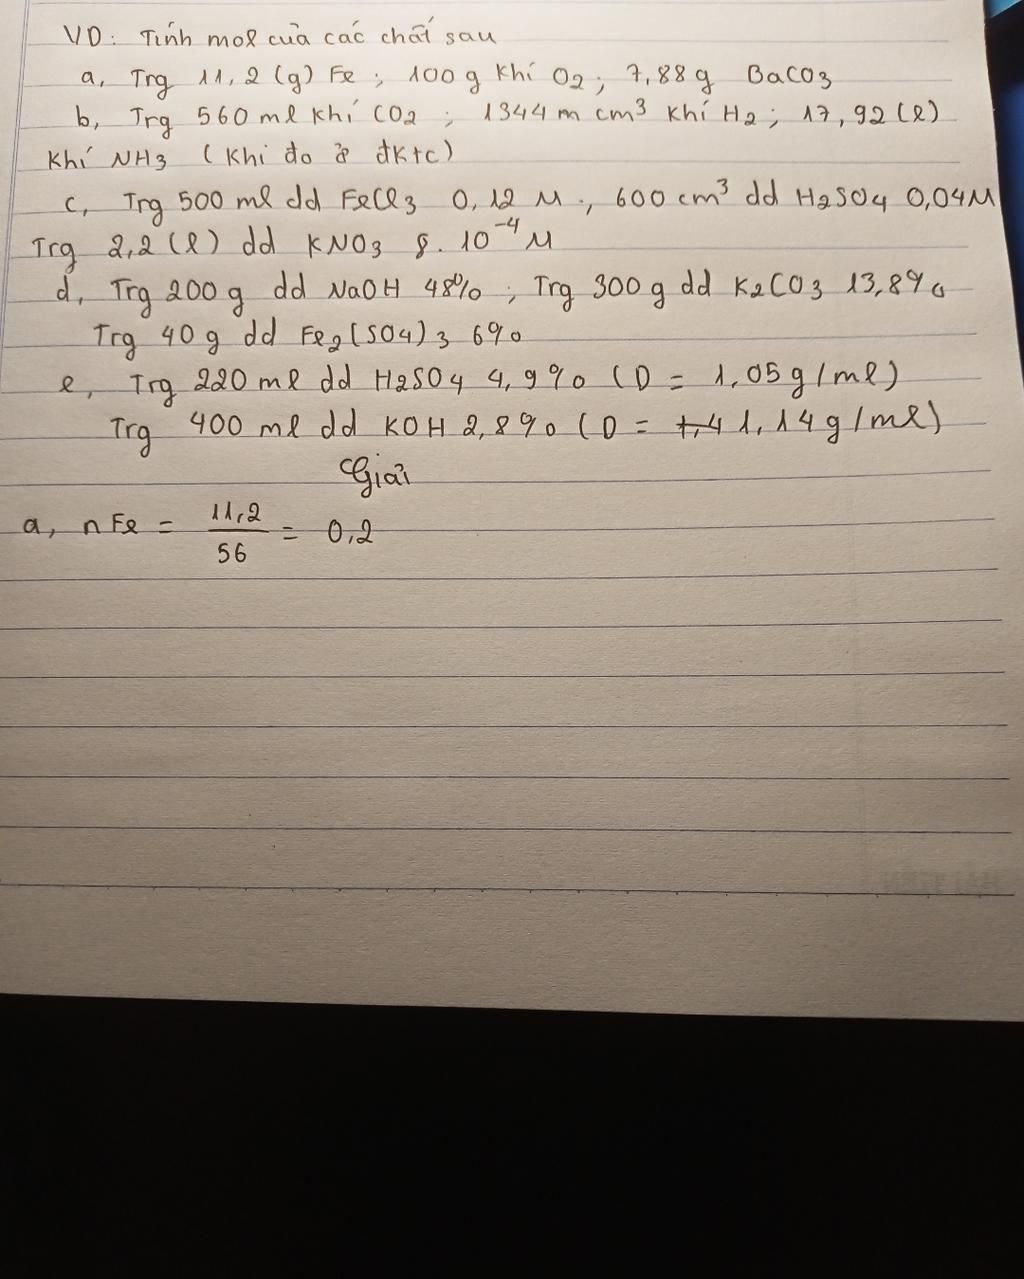 VD: Tính mol của các chất sau
a, Trg 11,2 (g) Fe ; 100 g khí O2 ; 7,88 g BaCO3
b, Trg 560 ml khí CO2 ; 1344 m cm³ khí H2 ; 17,92 (l)
khí NH3 ( khi đo ở đktc)
c, Trg 500 ml dd FeCl3 0,12 M ; 600 cm³ dd H2SO4 0,04M
Trg 2,2 (l) dd KNO3 8. 10⁻⁴ M
d, Trg 200 g dd NaOH 48% ; Trg 300 g dd K2CO3 13,8%
Trg 40 g dd Fe2(SO4)3 6%
e, Trg 220 ml dd H2SO4 4,9% (D = 1,05 g/ml)
Trg 400 ml dd KOH 2,8% (D = 1,41 1,14 g/ml)
Giải
a, nFe = 11,2/56 = 0,2